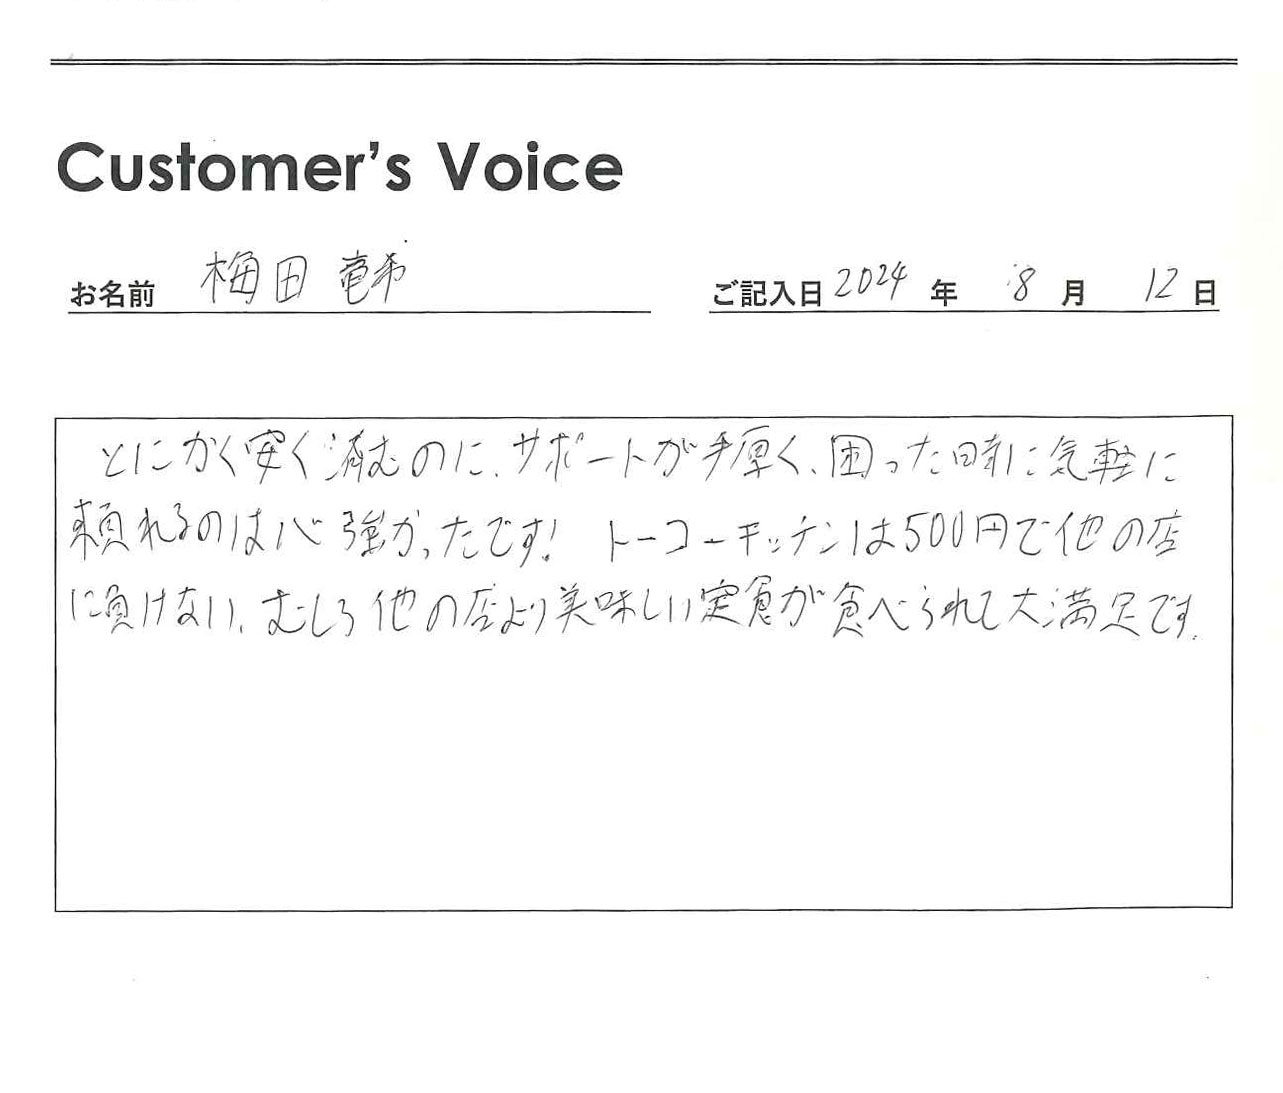 Customer's Voice
お名前 梅田 竜希 ご記入日 2024 年 8 月 12 日
とにかく安く済むのに、サポートが手厚く、困った時に気軽に
頼れるのは心強かったです! トーコーキッチンは500円で他の店
に負けない、むしろ他の店より美味しい定食が食べられて大満足です。